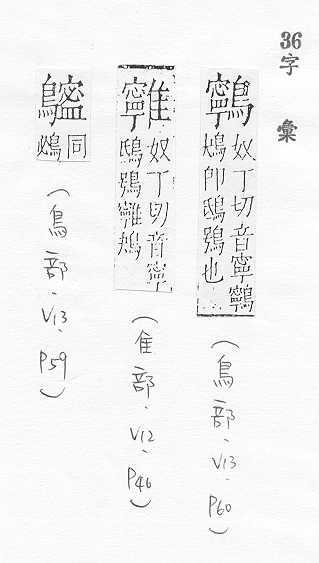 36字彙
鸋
奴丁切音寧鸋
鴂即鴟鴞也
(鳥部.V13.P60)
奴丁切音寧
鴟鴞鴂
(隹部.V12.P46)
同
(鳥部.V13.P59)